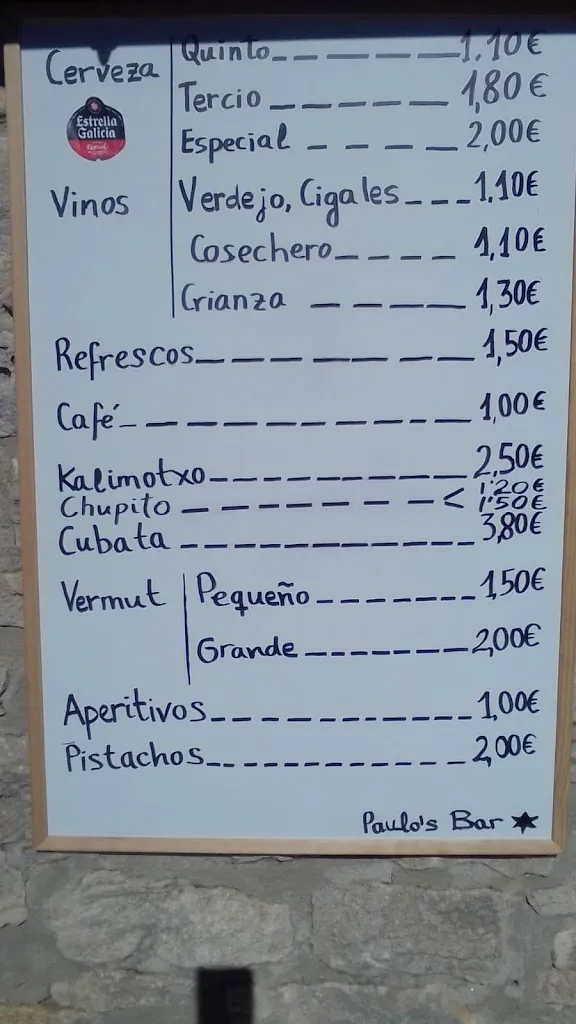 Cerveza
Quinto 1.10€
Tercio 1,80€
Especial 2,00€
Estrella
Galicia
Especial
Vinos
Verdejo, Cigales 1.10€
Cosechero 1,10€
Crianza 1,30€
Refrescos 1,50€
Café 1,00€
Kalimotxo 2,50€
Chupito < 1'20€
1'50€
Cubata 3,80€
Vermut
Pequeño 1,50€
Grande 2,00€
Aperitivos 1,00€
Pistachos 2,00€
Paulo's Bar ★